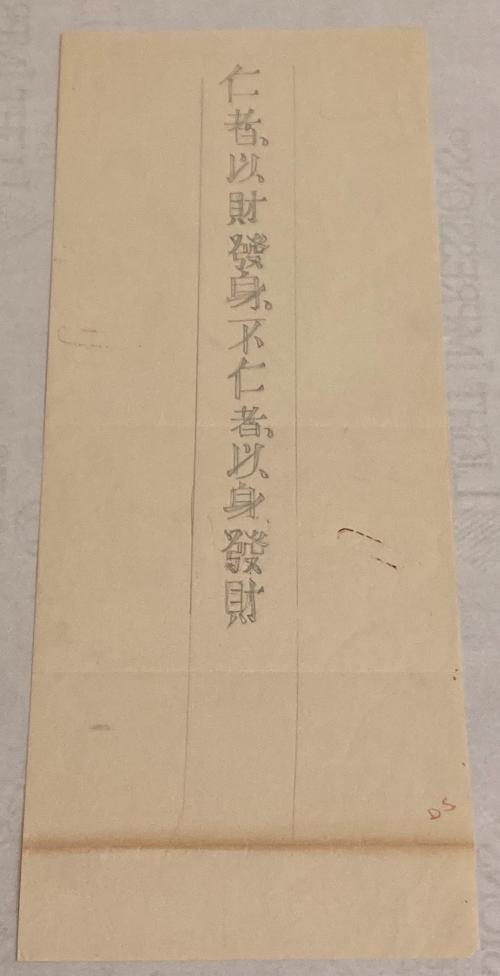 仁者、以財發身。不仁者、以身發財
DS